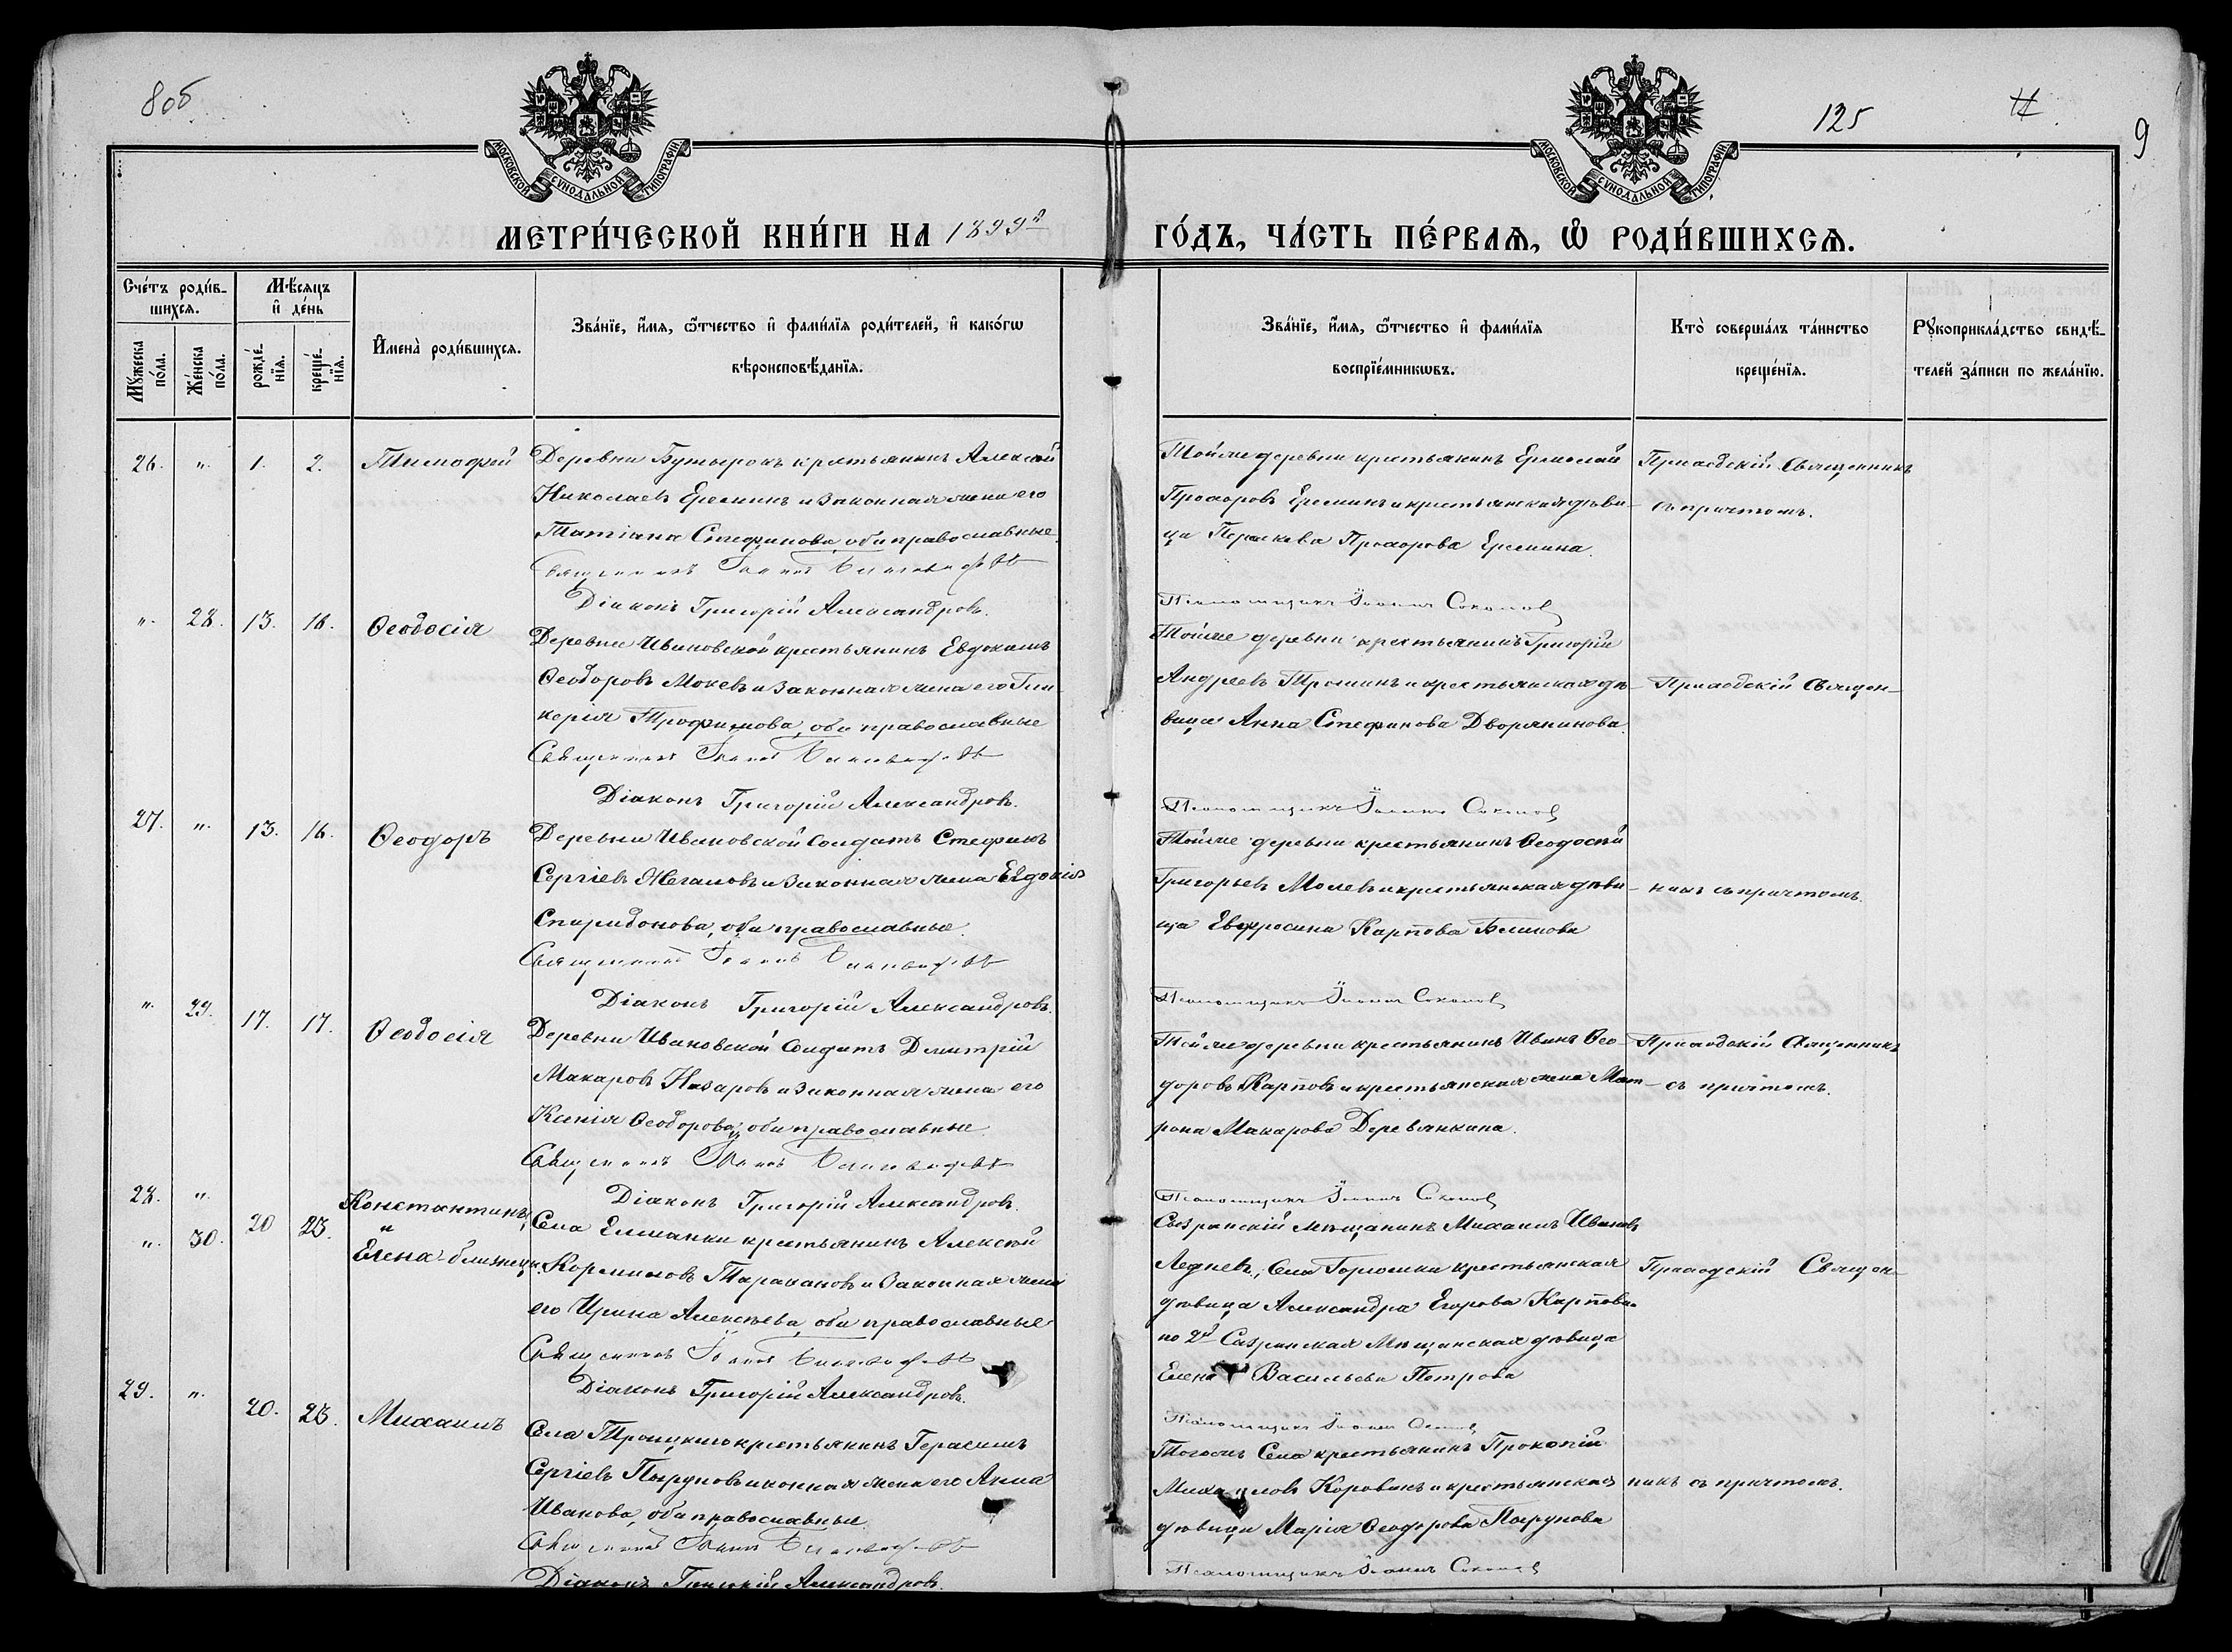 8об
125
9
МОСКОВСКОЙ СѴНОДАЛЬНОЙ ТИПОГРАФІИ
МОСКОВСКОЙ СѴНОДАЛЬНОЙ ТИПОГРАФІИ
МЕТРИ́ЧЕСКОЙ КНИ́ГИ НА 1899й
ГО́ДЪ, ЧА́СТЬ ПЕ́РВАѦ, Ѽ РОДИ́ВШИХСѦ.
Сче́тъ роди́в-
шихсѧ.
Мѣ́сѧцъ
и҆ де́нь
Мꙋ́жеска по́ла.
Же́нска по́ла.
рожде́-нїѧ.
креще́-нїѧ.
И҆мена̀ роди́вшихсѧ.
Зва́нїе, и҆́мѧ, ѻ҆́тчество и҆ фами́лїѧ роди́телей, и҆ како́гѡ
вѣроисповѣ́данїѧ.
Зва́нїе, и҆́мѧ, ѻ҆́тчество и҆ фами́лїѧ
воспрїе́мникѡвъ.
Кто̀ соверша́лъ та́инство
креще́нїѧ.
Рꙋкоприкла́дство свидѣ́-
телей за́писи по жела́нїю.
26. „ 1. 2. Тимофей
Деревни Бутырокъ крестьянинъ Алексѣй
Николаевъ Ереминъ и законная жена его
Татіана Стефанова, оба православные.
Священникъ Іоаннъ
Діаконъ Григорій Александровъ.
Тойже деревни крестьянинъ Ермолай
Прохоровъ Ереминъ и крестьянская дѣви-
ца Параскева Прохорова Еремина.
Псаломщикъ Іоаннъ Соколов
Приходскій Священникъ
съ причтомъ.
„ 28. 13. 16. Ѳеодосія
Деревни Ивановской крестьянинъ Евдокимъ
Ѳеодоровъ Мокевъ и законная жена его Гли-
керія Трофимова, оба православные
Священникъ Іоаннъ
Діаконъ Григорій Александровъ.
Тойже деревни крестьянинъ Григорій
Андреевъ Трошинъ и крестьянская дѣ-
вица Анна Стефанова Дворянинова.
Псаломщикъ Іоаннъ Соколов
Приходскій Священ-
27. „ 13. 16. Ѳеодоръ
Деревни Ивановской солдатъ Стефанъ
Сергіевъ Жегаловъ и законная жена Евдокія
Спиридонова, оба православные.
Священникъ Іоаннъ
Діаконъ Григорій Александровъ.
Тойже деревни крестьянинъ Ѳеодосій
Григорьевъ Молевъ и крестьянская дѣви-
ца Евфросина Карпова Блинова
Псаломщикъ Іоаннъ Соколов
никъ съ причтомъ.
„ 29. 17. 17. Ѳеодосія
Деревни Ивановской солдатъ Димитрій
Макаровъ Назаровъ и законная жена его
Ксенія Ѳеодорова, оба православные.
Священникъ Іоаннъ
Діаконъ Григорій Александровъ.
Тойже деревни крестьянинъ Иванъ Ѳео-
доровъ Карповъ и крестьянская жена Мат-
рона Макарова Деревянкина.
Псаломщикъ Іоаннъ Соколов
Приходскій Священникъ
съ причтомъ.
28. „
„ 30. 20 23. Константинъ
и
Елена-близнецы.
Села Елшанки крестьянинъ Алексѣй
Кормиловъ Таракановъ и законная жена
его Ирина Алексѣева, оба православные
Священникъ Іоаннъ
Діаконъ Григорій Александровъ.
Сызранскій мѣщанинъ Михаилъ Ивановъ
Ледневъ, Села Горюшки крестьянская
дѣвица Александра Егорова Карпова.
по 2й Сызранская Мѣщанская дѣвица
Елена Васильева Петрова
Псаломщикъ Іоаннъ
Приходскій Священ-
29. „ 20. 23. Михаилъ
Села Троицкаго крестьянинъ Герасимъ
Сергіевъ Пырунов законная жена его Анна
Иванова, оба православные.
Священникъ Іоаннъ
Діаконъ Григорій Александровъ.
Тогожъ Села крестьянинъ Прокопій
Михайловъ Коровинъ и крестьянская
дѣвица Марія Ѳеодорова Пырунова
Псаломщикъ Іоаннъ Соколов
никъ съ причтомъ.